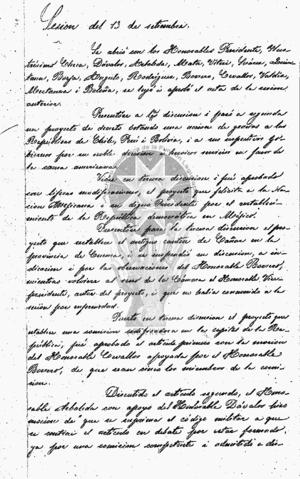 Sesion del 13 de setiembre.
Se abrió con los Honorables Presidente, Vice-
Dávalos, Arboleda,
Borja, Angulo, Rodríguez, Borrero, Cevallos, Valdivi
i se leyó i aprobó el acta de la sesion
anterior.
Sometióse a 1.ª discusion i pasó a segunda
un proyecto de decreto votando una accion de gracias a las
Repúblicas de Chile, Perú i Bolivia, i a sus respectivos go-
biernos por su noble decision i heroicos servicios en favor de
la causa americana.
Visto en tercera discusion i fué aprobado
con lijeras modificaciones, el proyecto que felicita a la Na-
cion Mejicana i a su digno Presidente por el restableci-
miento de la República democrática en Méjico.
por la tercera discusion el pro-
yecto que establece el antiguo canton de Cañar en la
provincia de Cuenca i suspensa su discusion, a in-
dicacion i por las observaciones del Honorable Borrero,
mientras volviera al seno de la Cámara el Honorable Vice-
presidente, autor del proyecto, i que no habia concurrido a la
sesion por enfermedad.
Puesto en tercera discusion el proyecto que
establece una comision codificadora en la capital de la Re-
pública, fué aprobado el artículo primero con la mocion
del Honorable Cevallos apoyada por el Honorable
Borrero, de que sean cinco los miembros de la comi-
sion.
Discutido el artículo segundo, el Hono-
rable Arboleda con apoyo del Honorable Dávalos hizo
mocion de que se imprima el código militar a que
se contrae el artículo en debate por estar formado,
ya por una comision competente i adoptado a dis-